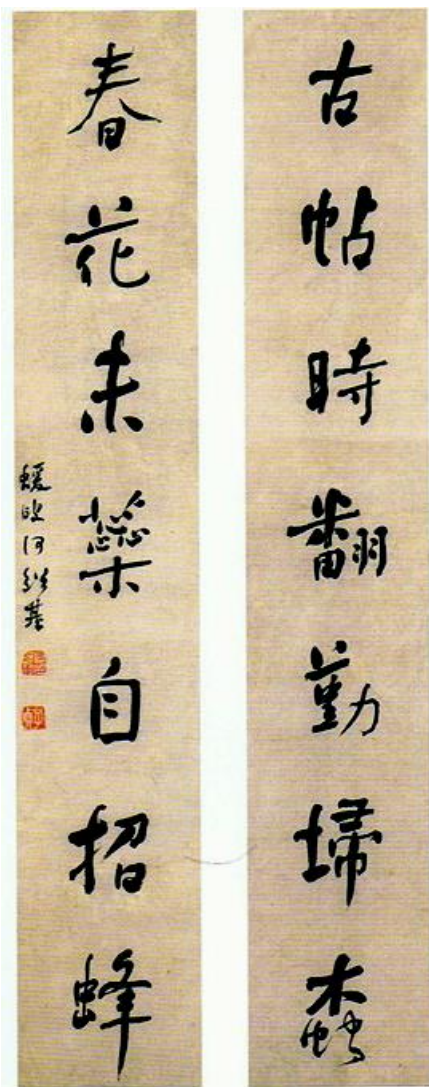 古帖時翻勤埽螙
春花未橤自招蜂
蝯叟何紹基